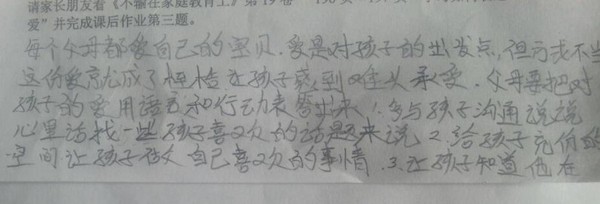 请家长朋友看《不输在家庭教育上》第19卷
爱”并完成课后作业第三题。
每个父母都爱自己的宝贝.爱是对孩子的出发点,但方式不当
这份爱就成了 让孩子感到难以承受.父母要把对
孩子的爱用语言和行动来答出来1.多与孩子沟通说说
心里话找一些孩子喜欢的话题来说2.给孩子充份的
空间让孩子做自己喜欢的事情.3.让孩子知道他在